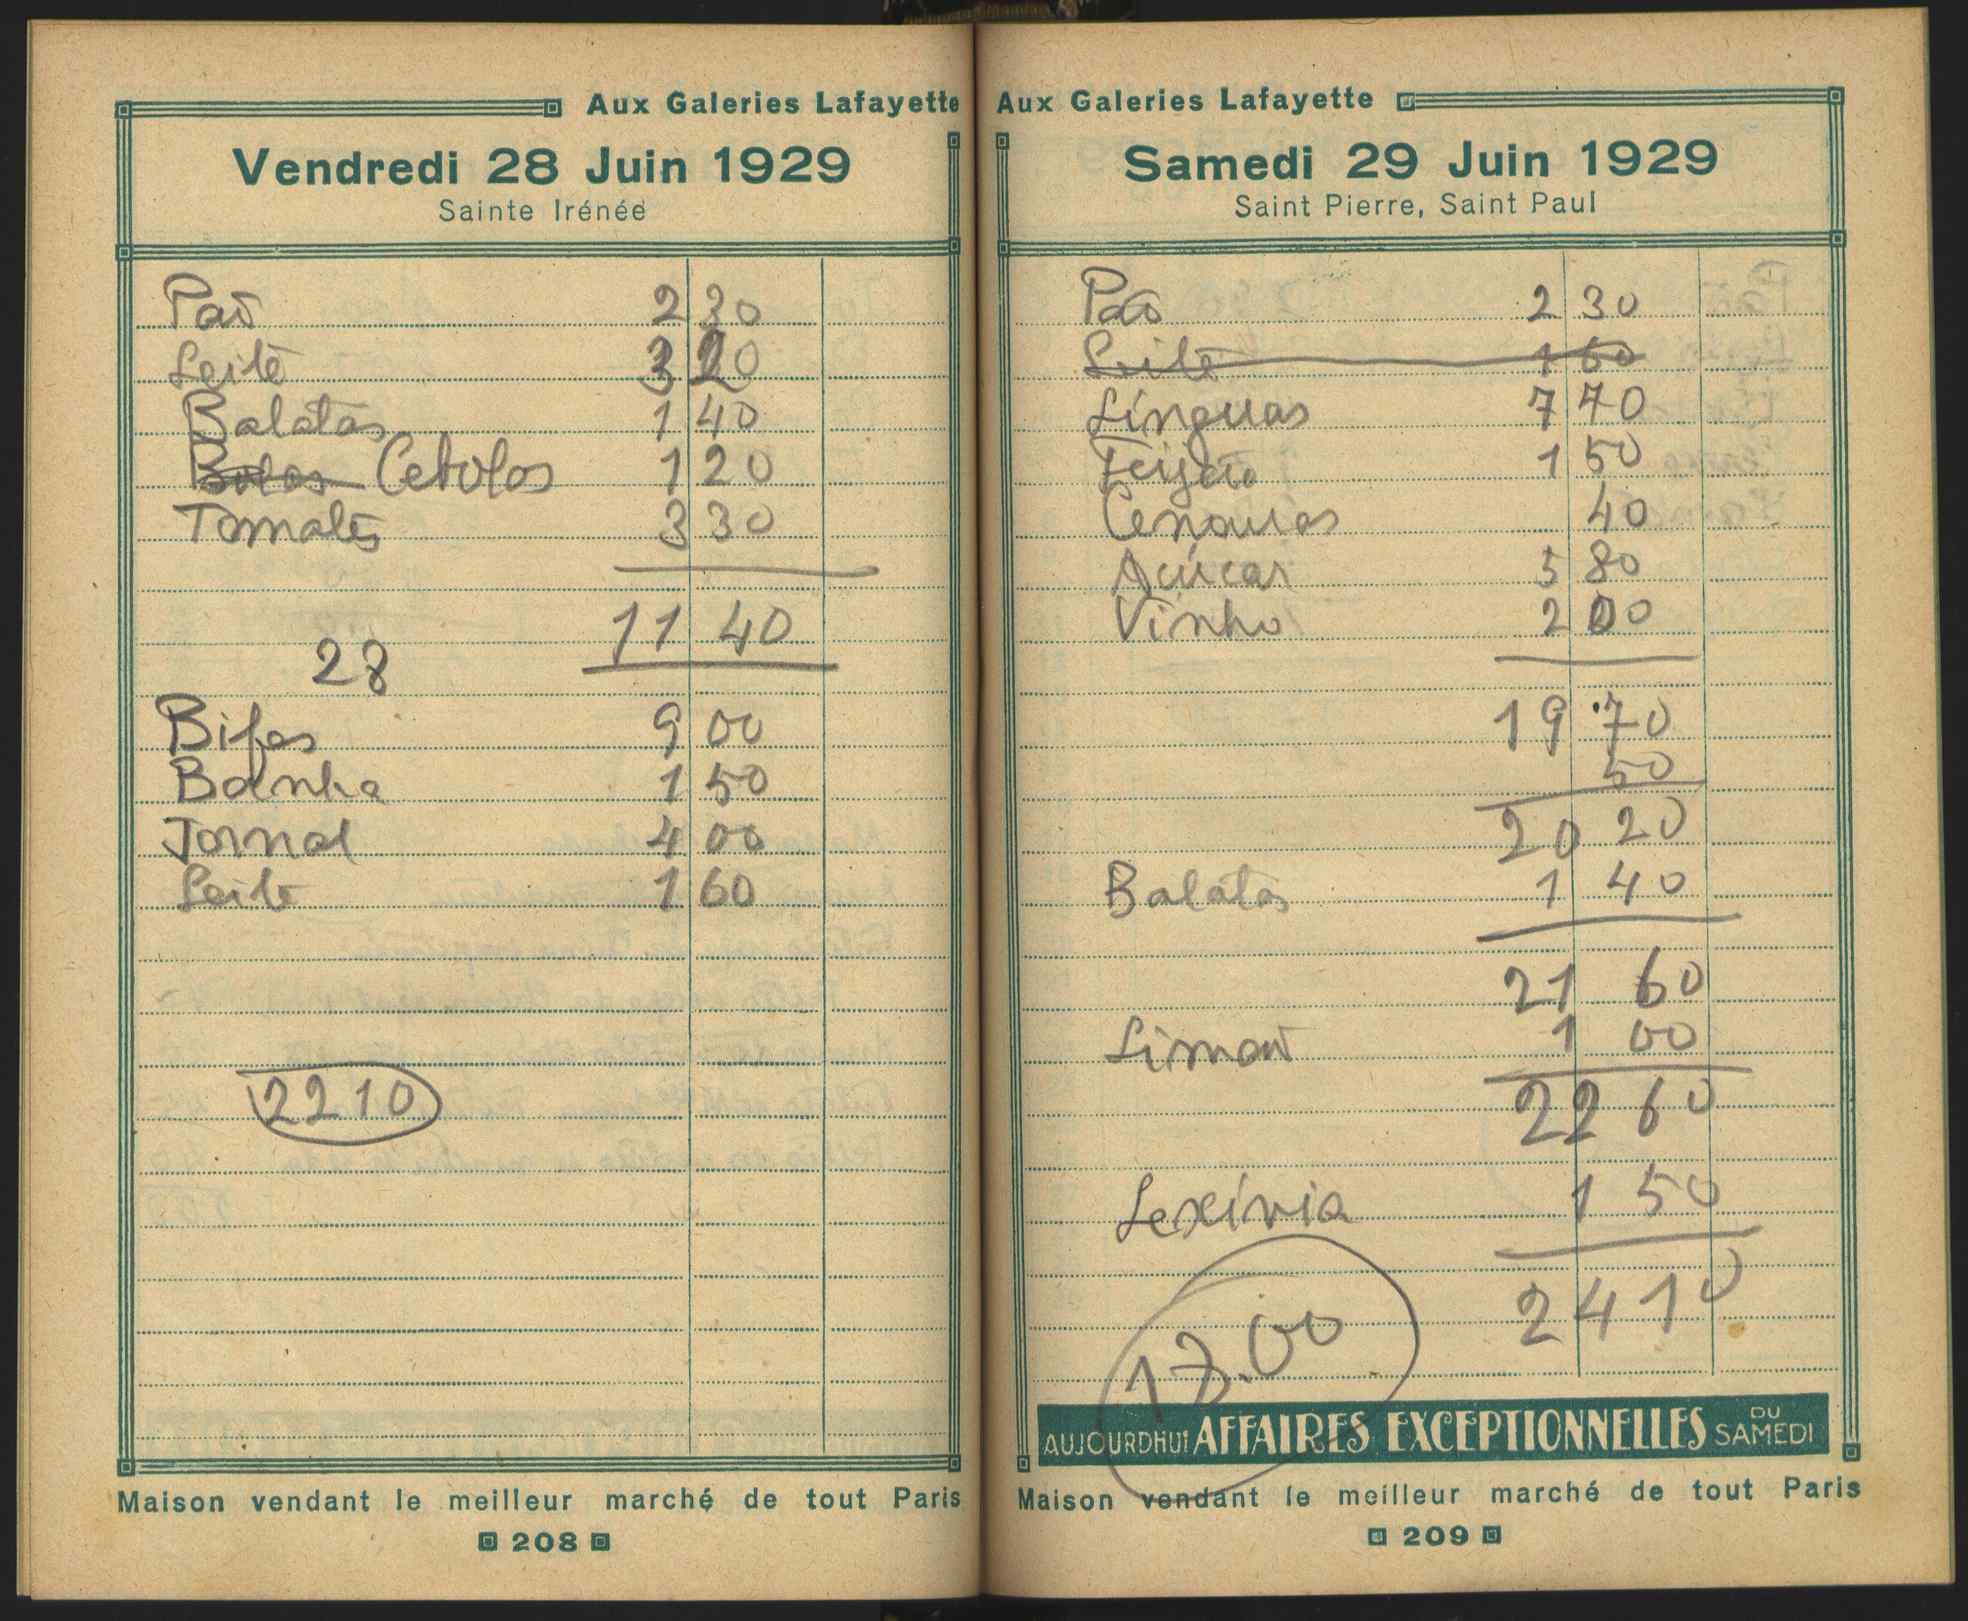 Aux Galeries Lafayette
Vendredi 28 Juin 1929
Sainte Irénée
Pão 2 30
Leite 3 20
Batatas 1 40
Bolos Cebolas 1 20
Tomates 3 30
11 40
28
Bifes 9 00
Banha 1 50
Jornal 4 00
Leite 1 60
2210
Maison vendant le meilleur marché de tout Paris
208
Aux Galeries Lafayette
Samedi 29 Juin 1929
Saint Pierre, Saint Paul
Pão 2 30
Leite 1 60
Linguas 7 70
Feijão 1 50
Cenouras 40
Açúcar 5 80
Vinho 2 00
19 70
50
20 20
Batatas 1 40
21 60
Limão 1 00
22 60
Lexívia 1 50
24 10
17.00
AUJOURDHUI AFFAIRES EXCEPTIONNELLES DU SAMEDI
Maison vendant le meilleur marché de tout Paris
209